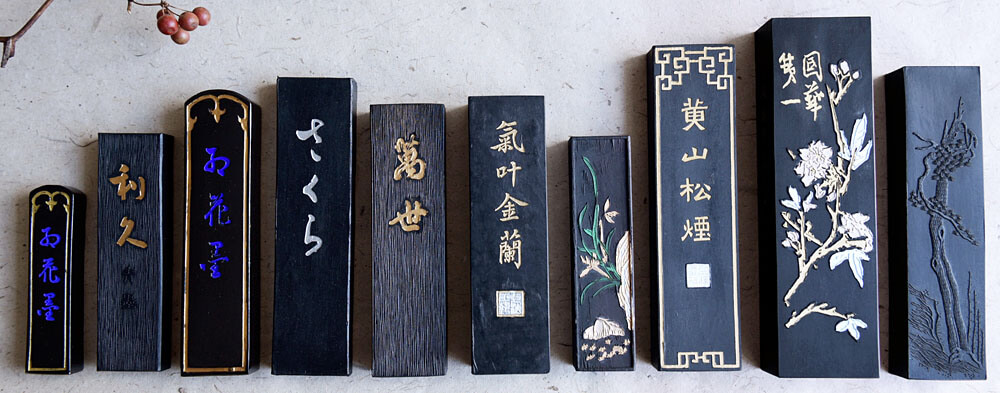 紅花墨
利久
紅花墨
さくら
萬世
氣叶金蘭
黄山松煙
國華
第一